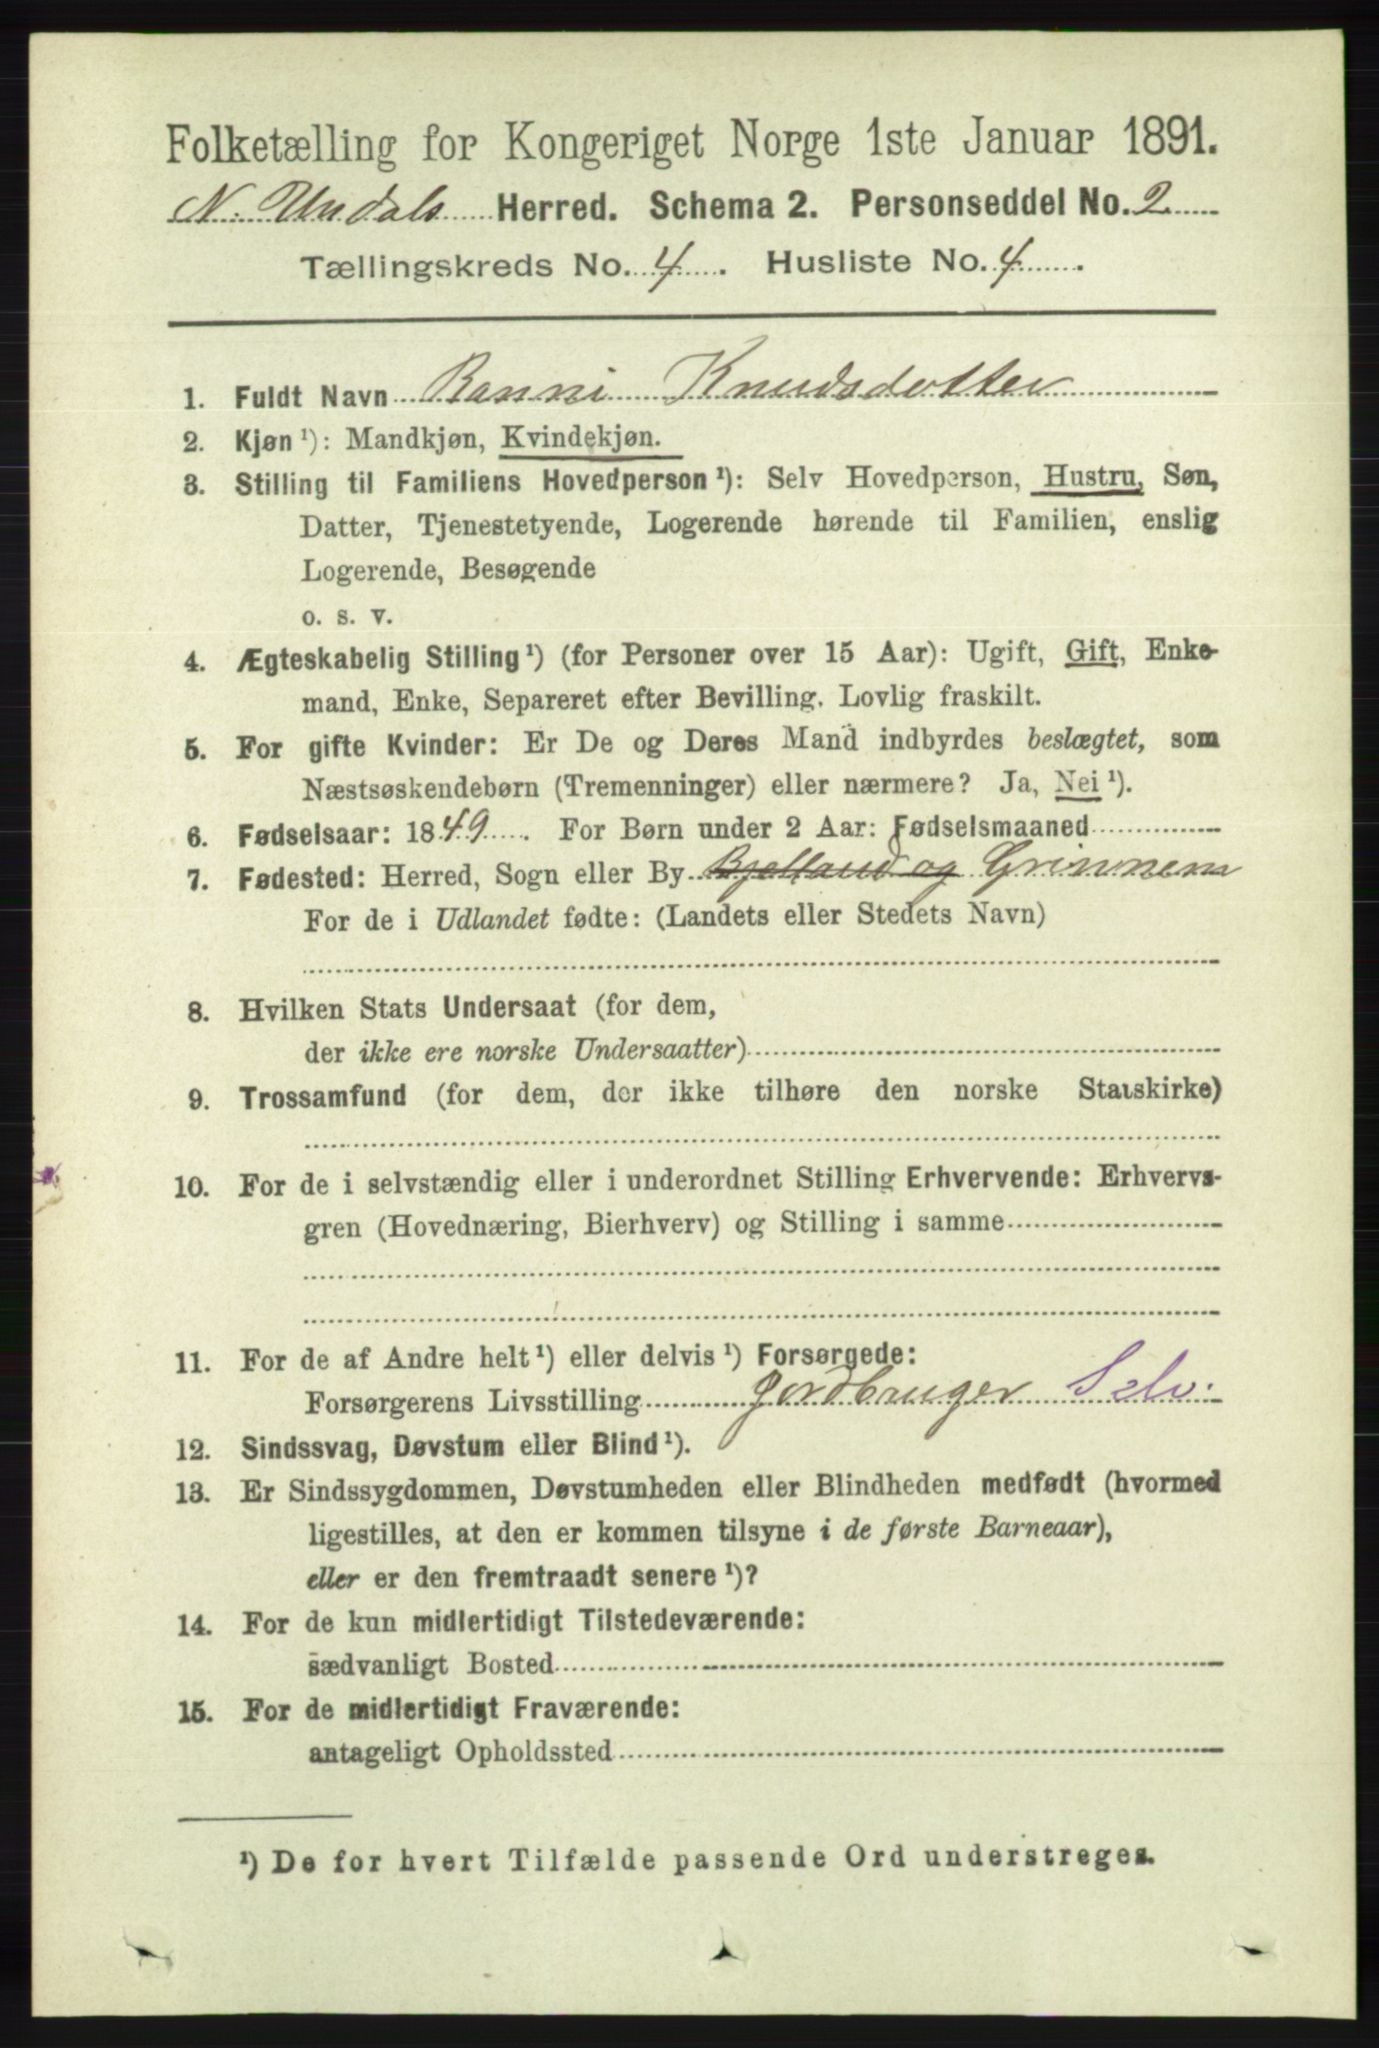 Folketælling for Kongeriget Norge 1ste Januar 1891.
N. Undals Herred. Schema 2. Personseddel No. 2
Tællingskreds No. 4. Husliste No. 4.
1. Fuldt Navn Ranni Knudsdotter
2. Kjøn ¹): Mandkjøn, Kvindekjøn.
3. Stilling til Familiens Hovedperson ¹): Selv Hovedperson, Hustru, Søn,
Datter, Tjenestetyende, Logerende hørende til Familien, enslig
Logerende, Besøgende
o. s. v.
4. Ægteskabelig Stilling ¹) (for Personer over 15 Aar): Ugift, Gift, Enke-
mand, Enke, Separeret efter Bevilling. Lovlig fraskilt.
5. For gifte Kvinder: Er De og Deres Mand indbyrdes beslægtet, som
Næstsøskendebørn (Tremenninger) eller nærmere? Ja, Nei ¹).
6. Fødselsaar: 1849. For Børn under 2 Aar: Fødselsmaaned
7. Fødested: Herred, Sogn eller By Bjelland og Grinnem
For de i Udlandet fødte: (Landets eller Stedets Navn)
8. Hvilken Stats Undersaat (for dem,
der ikke ere norske Undersaatter)
9. Trossamfund (for dem, der ikke tilhøre den norske Statskirke)
10. For de i selvstændig eller i underordnet Stilling Erhvervende: Erhvervs-
gren (Hovednæring, Bierhverv) og Stilling i samme
11. For de af Andre helt ¹) eller delvis ¹) Forsørgede:
Forsørgerens Livsstilling Jordbruger Selv.
12. Sindssvag, Døvstum eller Blind ¹).
13. Er Sindssygdommen, Døvstumheden eller Blindheden medfødt (hvormed
ligestilles, at den er kommen tilsyne i de første Barneaar),
eller er den fremtraadt senere ¹)?
14. For de kun midlertidigt Tilstedeværende:
sædvanligt Bosted
15. For de midlertidigt Fraværende:
antageligt Opholdssted
¹) De for hvert Tilfælde passende Ord understreges.